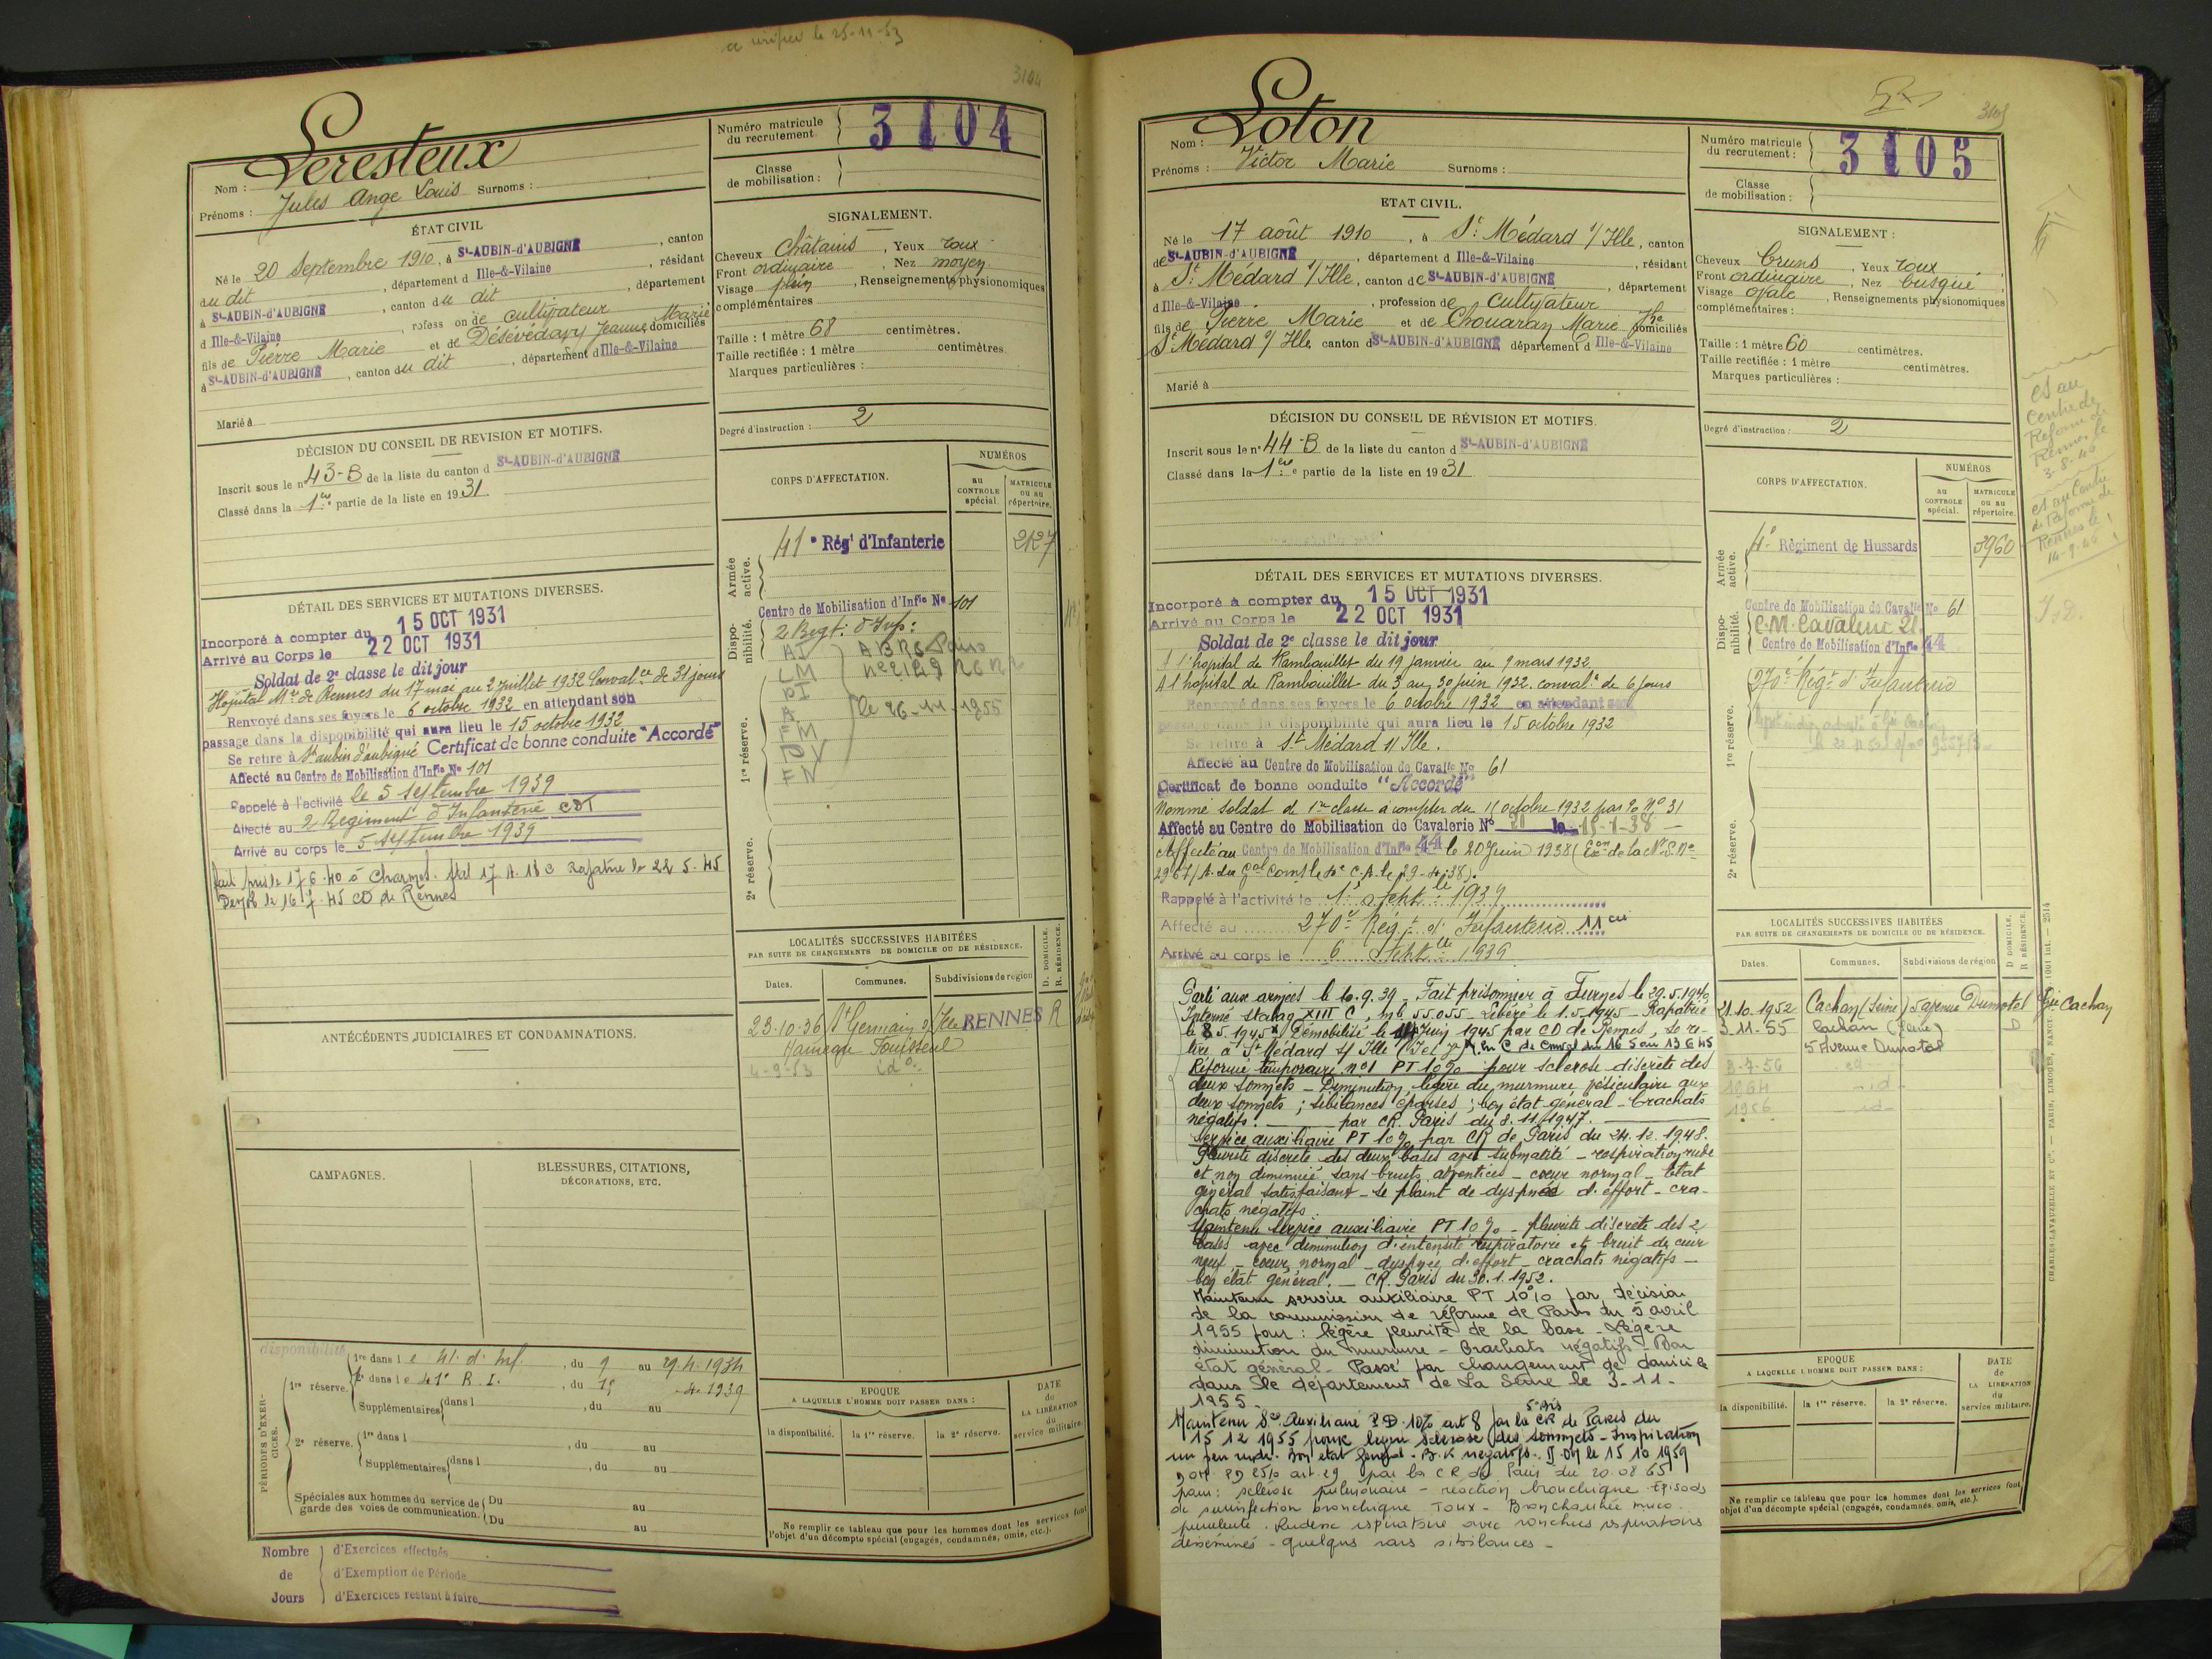 a vérifier le 25-11-53
3104
Leresteux
Nom :
Prénoms : Jules Ange Louis Surnoms :
Numéro matricule du recrutement 3104
Classe de mobilisation :
ÉTAT CIVIL
Né le 20 Septembre 1910, à St-AUBIN-d'AUBIGNÉ, canton
du dit, département d Ille-&-Vilaine, résidant
à St-AUBIN-d'AUBIGNÉ, canton du dit, département
d Ille-&-Vilaine, rofess on de cultivateur
fils de Pierre Marie et de Désévédavy Jeanne Marie domiciliés
à St-AUBIN-d'AUBIGNÉ, canton du dit, département d Ille-&-Vilaine
Marié à
SIGNALEMENT.
Cheveux Châtains, Yeux roux
Front ordinaire, Nez moyen
Visage plein, Renseignements physionomiques
complémentaires
Taille : 1 mètre 68 centimètres.
Taille rectifiée : 1 mètre centimètres.
Marques particulières :
Degré d'instruction : 2
DÉCISION DU CONSEIL DE REVISION ET MOTIFS.
Inscrit sous le n° 43-B de la liste du canton d St-AUBIN-d'AUBIGNÉ
Classé dans la 1ère partie de la liste en 1931.
CORPS D'AFFECTATION.
NUMÉROS
au CONTROLE spécial.
MATRICULE ou au répertoire.
Armée active.
41e Régt d'Infanterie 2127
Dispo-nibilité.
Centre de Mobilisation d'Infie No 101
2 Regt. d'Inf:
1re réserve.
le 26-11-1955
2e réserve.
DÉTAIL DES SERVICES ET MUTATIONS DIVERSES.
Incorporé à compter du 15 OCT 1931
Arrivé au Corps le 22 OCT 1931
Soldat de 2e classe le dit jour
Hôpital Mre de Rennes du 17 mai au 2 juillet 1932 Convalce de 31 jours
Renvoyé dans ses foyers le 6 octobre 1932 en attendant son
passage dans la disponibilité qui aura lieu le 15 octobre 1932
Se retire à St aubin d'aubigné Certificat de bonne conduite "Accordé"
Affecté au Centre de Mobilisation d'Infie No 101
Rappelé à l'activité le 5 septembre 1939
Affecté au 2 Régiment d'Infanterie CDT
Arrivé au corps le 5 septembre 1939
fait pris le 17 6.40 à Charmes. Stal 17 A. 18 C Rapatrié le 22.5.45
Demob le 16.7.45 CD de Rennes
LOCALITÉS SUCCESSIVES HABITÉES
PAR SUITE DE CHANGEMENTS DE DOMICILE OU DE RÉSIDENCE.
D. DOMICILE.
R. RÉSIDENCE.
Dates. Communes. Subdivisions de région
23-10-36 St Germain s/ Ille RENNES R
4-9-53 id°
ANTÉCÉDENTS JUDICIAIRES ET CONDAMNATIONS.
CAMPAGNES.
BLESSURES, CITATIONS, DÉCORATIONS, ETC.
PÉRIODES D'EXER-CICES.
disponibilité
1re réserve. 1re dans le 41. d'Inf., du 9 au 29.4.1934
2e dans le 41e R.I., du 15 4.1939
Supplémentaires dans l , du au
2e réserve. 1re dans l , du au
Supplémentaires dans l , du au
Spéciales aux hommes du service de garde des voies de communication. Du au
Du au
EPOQUE
A LAQUELLE L'HOMME DOIT PASSER DANS :
la disponibilité. la 1re réserve. la 2e réserve.
DATE de LA LIBÉRATION du service militaire.
Ne remplir ce tableau que pour les hommes dont les services font
l'objet d'un décompte spécial (engagés, condamnés, omis, etc.).
Nombre de Jours
d'Exercices effectués
d'Exemption de Période
d'Exercices restant à faire
3105
Loton
Nom :
Prénoms : Victor Marie Surnoms :
Numéro matricule du recrutement : 3105
Classe de mobilisation :
ETAT CIVIL.
Né le 17 août 1910, à St Médard s/ Ille, canton
de St-AUBIN-d'AUBIGNÉ, département d Ille-&-Vilaine, résidant
à St Médard s/ Ille, canton de St-AUBIN-d'AUBIGNÉ, département
d Ille-&-Vilaine, profession de cultivateur
fils de Pierre Marie et de Chouaran Marie domiciliés
St Médard s/ Ille canton d St-AUBIN-d'AUBIGNÉ département d Ille-&-Vilaine
Marié à
SIGNALEMENT :
Cheveux bruns, Yeux roux
Front ordinaire, Nez busqué
Visage ovale, Renseignements physionomiques
complémentaires :
Taille : 1 mètre 60 centimètres.
Taille rectifiée : 1 mètre centimètres.
Marques particulières :
Degré d'instruction : 2
DÉCISION DU CONSEIL DE RÉVISION ET MOTIFS.
Inscrit sous le n° 44-B de la liste du canton d St-AUBIN-d'AUBIGNÉ
Classé dans la 1ère partie de la liste en 1931.
CORPS D'AFFECTATION.
NUMÉROS
au CONTROLE spécial.
MATRICULE ou au répertoire.
Armée active.
4e Régiment de Hussards 3960
Dispo-nibilité.
Centre de Mobilisation de Cavalie No 61
C.M. Cavalerie 21.
Centre de Mobilisation d'Infie 44
270e Régt d'Infanterie
1re réserve.
2e réserve.
et au Centre de Réforme de Rennes le 3-8-46
et au Centre de Réforme de Rennes le 14-9-46
DÉTAIL DES SERVICES ET MUTATIONS DIVERSES.
Incorporé à compter du 15 OCT 1931
Arrivé au Corps le 22 OCT 1931
Soldat de 2e classe le dit jour
A l'hopital de Rambouillet du 19 janvier au 9 mars 1932
A l'hopital de Rambouillet du 3 au 30 juin 1932. conval. de 6 jours
Renvoyé dans ses foyers le 6 octobre 1932 en attendant son
passage dans la disponibilité qui aura lieu le 15 octobre 1932
Se retire à St Médard s/ Ille.
Affecté au Centre de Mobilisation de Cavalie No 61
Certificat de bonne conduite "Accordé"
Nommé soldat de 1re classe à compter du 11 octobre 1932 par O. No 31
Affecté au Centre de Mobilisation de Cavalerie No 21 le 15-1-38
Affecté au Centre de Mobilisation d'Infie 44 le 20 Juin 1938 (Exon de la Nte S. No
Rappelé à l'activité le 1er Septbre 1939
Affecté au 270e Régt d'Infanterie 11cie
Arrivé au corps le 6 Septbre 1939
Parti aux armées le 10.9.39 - Fait prisonnier à Furnes le 29.5.1940
Interné stalag XIII C, mle 55.055 - Libéré le 1.5.1945 - Rapatrié
le 8.5.1945. Démobilisé le 14 Juin 1945 par CD de Rennes, se re-
tire à St Médard s/ Ille En C de Conval du 16 5 au 13 6 45
Réformé temporaire n°1 PT 10% pour sclérose discrète des
deux sommets - Diminution légère du murmure vésiculaire aux
deux sommets ; sibilances éparses ; bon état général - Crachats
négatifs. par CR. Paris du 3.11.1947.
Service auxiliaire PT 10% par CR de Paris du 24.12.1948.
Pleurite discrète des deux bases avec submatité - respiration rude
et non diminuée sans bruits adventices - cœur normal - Etat
général satisfaisant - se plaint de dyspnée d'effort - cra-
chats négatifs.
Maintenu service auxiliaire PT 10% - pleurite discrète des 2
bases avec diminution d'intensité respiratoire et bruit de cuir
neuf - cœur normal - dyspnée d'effort - crachats négatifs -
bon état général. - CR. Paris du 30.1.1952.
Maintenu service auxiliaire PT 10% par décision
de la commission de réforme de Paris du 5 avril
1955 pour : légère pleurite de la base - légère
diminution du murmure - Crachats négatifs - Bon
état général - Passé par changement de domicile
dans le département de La Seine le 3-11-
1955
Maintenu Sce Auxiliaire P.D. 10% art 8 par la CR de Paris du
15 12 1955 pour légère sclérose des sommets - Inspiration
un peu rude. Bon état général. B.K négatifs. le 15 10 1959
PD 25% art 29 par la CR de Paris du 20.08 65
pour : sclérose pulmonaire - réaction bronchique. Episodes
de surinfection bronchique Toux - Bronchorrhée muco.
purulente. Rudesse respiratoire avec ronchus respiratoires
disséminés - quelques rares sibilances -
LOCALITÉS SUCCESSIVES HABITÉES
PAR SUITE DE CHANGEMENTS DE DOMICILE OU DE RÉSIDENCE.
D DOMICILE.
R RÉSIDENCE.
Dates. Communes. Subdivisions de région
21.10.1952 Cachan (Seine) 5 avenue Dumotel Gie Cachan
3.11.55 Cachan (Seine) D
5 Avenue Dumotel
3-7-56 id
1964 id
1966 id
EPOQUE
A LAQUELLE L'HOMME DOIT PASSER DANS :
la disponibilité. la 1re réserve. la 2e réserve.
DATE de LA LIBÉRATION du service militaire.
Ne remplir ce tableau que pour les hommes dont les services font
objet d'un décompte spécial (engagés, condamnés, omis, etc.).
CHARLES-LAVAUZELLE ET Cie. — PARIS, LIMOGES, NANCY (1001 int. — 2514